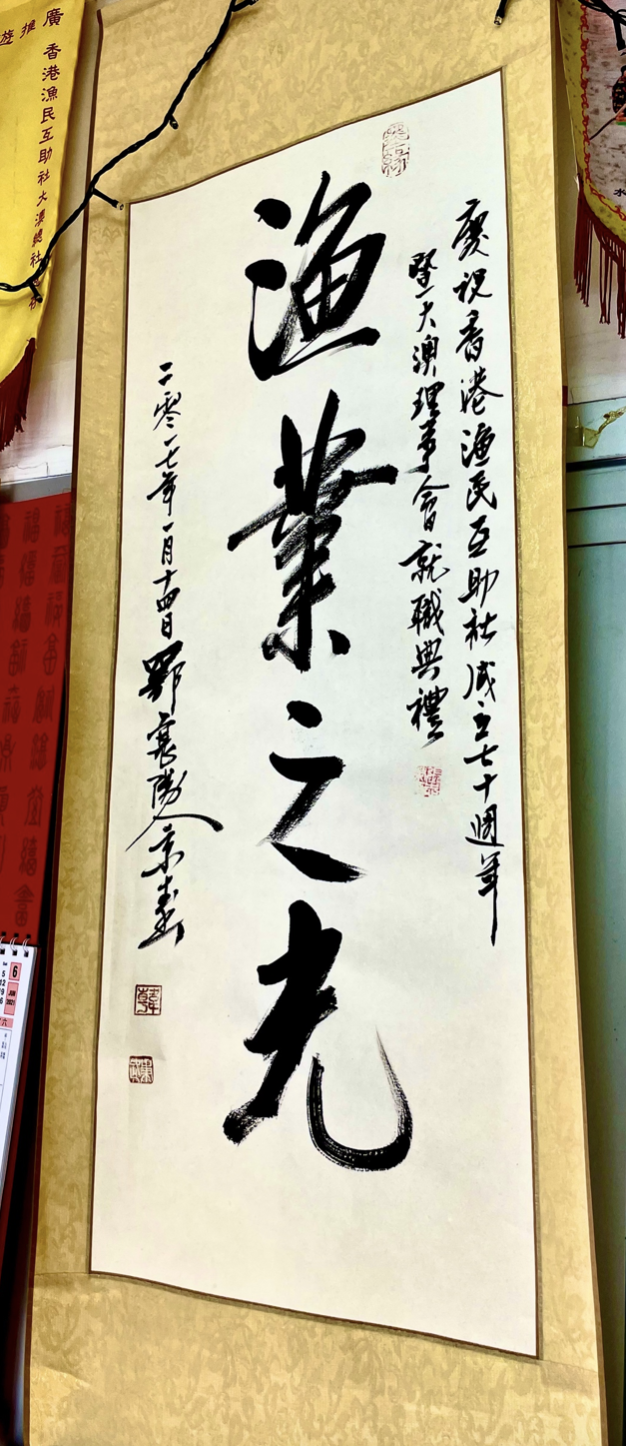 慶祝香港漁民互助社成立七十週年
暨大澳理事會就職典禮
漁業之光
二零一七年一月十四日鄂襄陽人京春
廣
推
遊
香港漁民互助社大澳總社
水
6
JUN
2021
六